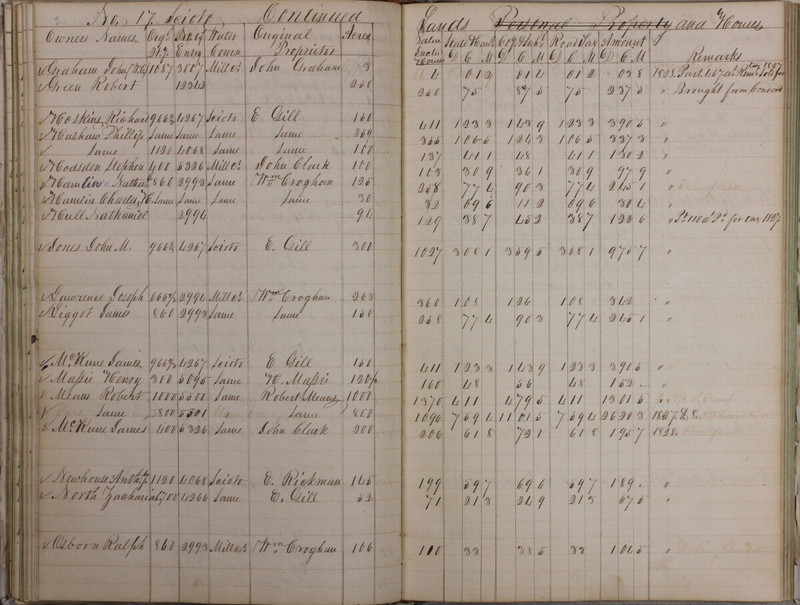 No. 17 Scioto Continued Lands Personal Property and Houses
Owners Names Orig. Qty No. of Entry Water Course Original Proprietor Acres Value Inclu. Houses State Co. & Road Tax Amount Remarks
Graham John 1087 3007 Mill Cr John Graham 3 4 012 014 012 038 1828
Green Robert 1234 250 250 75 875 75 2375 " Brought from Concord
Hoskins Richard 966⅔ 4267 Scioto E. Gill 150 411 1233 1439 1233 3905 "
Henshaw Phillip Same Same Same Same
Same 1120 4068 Same Same 100 137 411 48 411 1302 "
Hodsden Stephen 400 5326 Mill Cr John Clark 100 103 309 361 309 979 "
Hamlin Nathan 860 2993 Same Wm Croghan 125 258 774 903 774 2451 "
Hamlin Charles H. Same Same Same Same 30 32 096 112 096 304 "
Hull Nathaniel 2994 94 129 387 452 387 1226
Jones John M. 966⅔ 4267 Scioto E. Gill 300 1027 3081 3595 3081 9757 "
Lawrence Joseph 666⅔ 2994 Mill Cr Wm Croghan 263 360 108 126 108 342 "
Liggot James 860 2993 Same Same 150 258 774 903 774 2451 "
McKune James 966⅔ 4267 Scioto E Gill 150 411 1233 1439 1233 3905 "
Massie Henry 300 5095 Same H. Massie 160 48 56 48 152 "
Means Robert 1000 5500 Same Robert Means 1000 1370 411 4795 411 13015
Same 800 5501 Same 800 1096 7594 11015 7594 26203 1827 & 8
McKune James 400 5326 Same John Clark 200 206 618 721 618 1957 1828
Newhouse Anthy 1120 4068 Scioto E. Rickman 145 199 597 696 597 189 "
North Zachariah 700 4266 Same E. Gill 52 71 213 249 213 675 "
Osborn Ralph 860 2993 Mill Cr Wm Croghan 106 110 33 385 33 1045 "